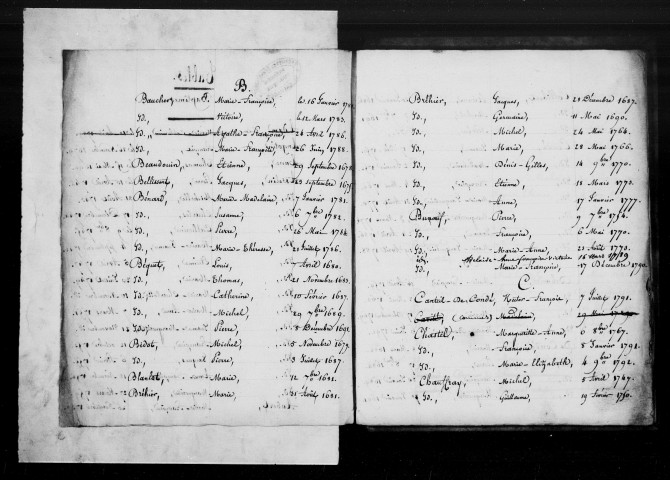 Table.
B.
Marie-Françoise, le 16 Janvier
Id, Victoire, le 12 Mars 1783.
Id, Agathe-Françoise, 24 Avril 1786.
Id, Marie-Françoise, 26 Juin 1788.
Beaudouin, Etienne, 29 Septembre
Bellissent, Jacques, 23 septembre
Bénard, Marie Madelaine, 7 Janvier 1781.
Id, Susanne, 6 7bre 1782.
Id, Pierre, 26 Mai 1784.
Id, Marie-Thérèse, 21 Juillet 1786.
Béquet, Louis, 7 Avril 1680.
Id, Thomas, 21 Novembre 1683.
Id, Catherine, 10 Février 1687.
Id, Michel, 29 7bre 1689.
Id, Pierre, 8 Décembre 1691.
Bidot, Michel, 5 Novembre
Id, Pierre, 3 Juillet 1687.
Blanlot, Marie, 12 7bre 1681.
Bréhier, Marie, 31 Août 1681.
Bréhier, Jacques, 21 Décembre 1687.
Id, Germaine, 11 Mai 1690.
Id, Michel, 24 Mai 1764.
Id, Marie, 28 Mai 1766.
Id, Denis-Gilles, 14 9bre 1770.
Id, Etienne, 18 Mars 1773.
Id, Anne, 17 Janvier 1777.
Pierre, 9 7bre 1764.
Id, Françoise, 6 Mai 1770.
Id, Marie-Anne, 21 Août 1773.
Id, 16 mars 1789
Id, Marie-Françoise, 17 Décembre 1790.
C.
Canteil-De-Condé, Victor-François, 7 Juillet 1791.
29 Mai
Chastel, Marguerite-Anne, 6 8bre 1767.
Id, Françoise, 5 Janvier 1791.
Id, Marie-Elizabeth, 4 9bre 1792.
Chauffray, Michel, 5 Avril 1747.
Id, Guillaume, 19 Février 1750.